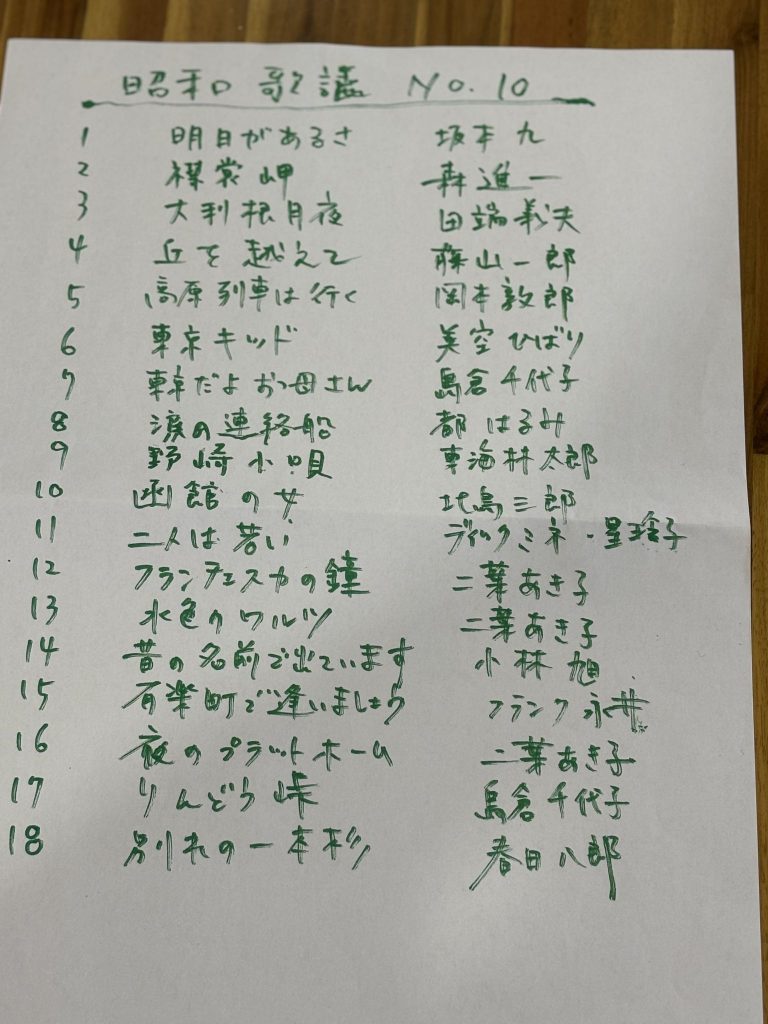 昭和歌謡 No.10
1 明日があるさ 坂本九
2 襟裳岬 森進一
3 大利根月夜 田端義夫
4 丘を越えて 藤山一郎
5 高原列車は行く 岡本敦郎
6 東京キッド 美空ひばり
7 東京だよおっ母さん 島倉千代子
8 涙の連絡船 都はるみ
9 野崎小唄 東海林太郎
10 函館の女 北島三郎
11 二人は若い ディックミネ・星玲子
12 フランチェスカの鐘 二葉あき子
13 水色のワルツ 二葉あき子
14 昔の名前で出ています 小林旭
15 有楽町で逢いましょう フランク永井
16 夜のプラットホーム 二葉あき子
17 りんどう峠 島倉千代子
18 別れの一本杉 春日八郎